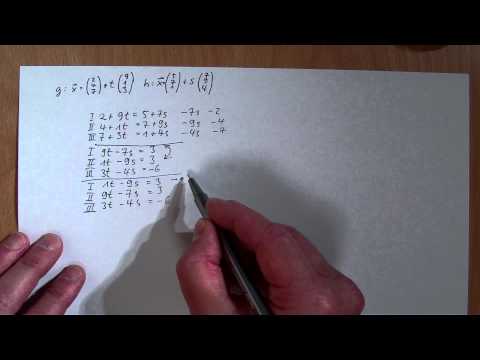 g: x⃗ = (2 4 7) + t (9 1 3)   h: x⃗ = (5 7 1) + s (7 9 4)
I 2 + 9t = 5 + 7s   -7s   -2
II 4 + 1t = 7 + 9s   -9s   -4
III 7 + 3t = 1 + 4s   -4s   -7
I 9t - 7s = 3
II 1t - 9s = 3
III 3t - 4s = -6
I 1t - 9s = 3
II 9t - 7s = 3
III 3t - 4s = -6